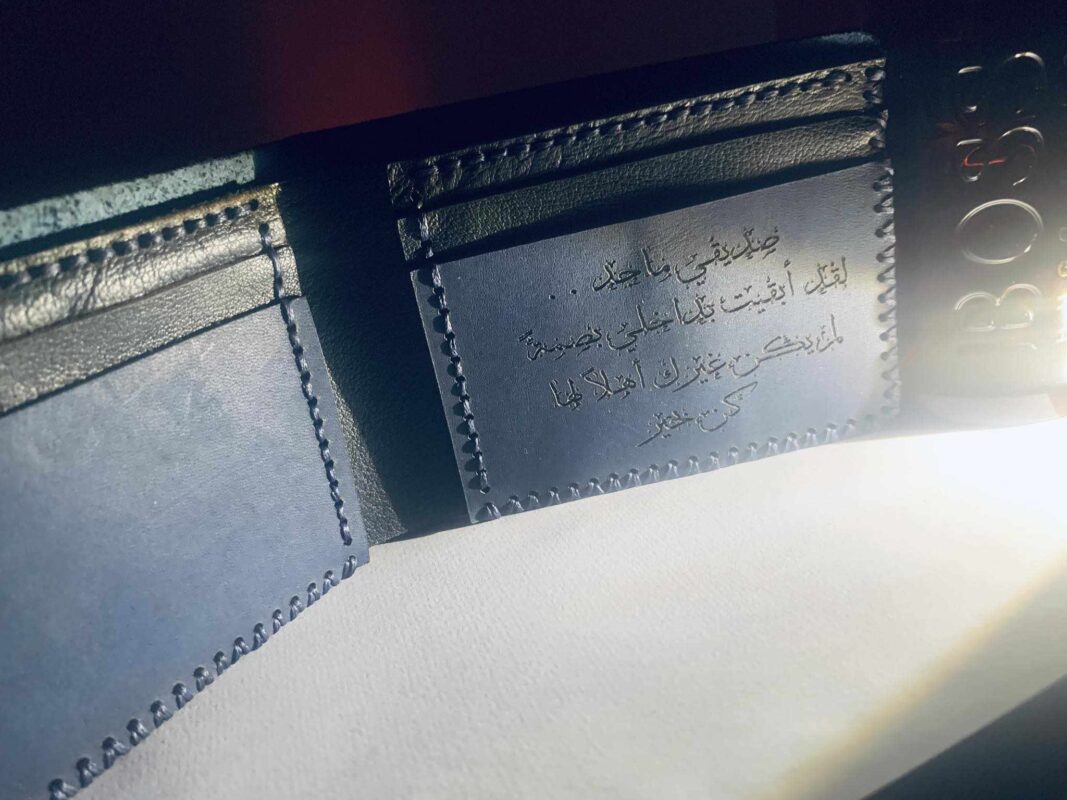 صديقي ماجد ..
لقد أبقيت بداخلي بصمةً
لن يكن غيرك أهلاً لها
كن بخير
BOSS